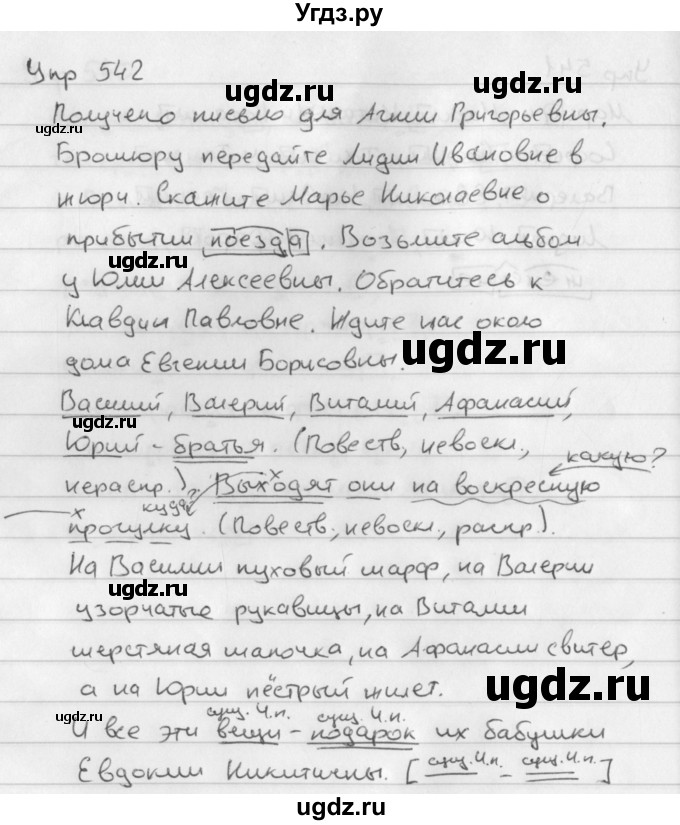 Угдз.ру
Упр 542
Получено письмо для Агнии Григорьевны.
Брошюру передайте Лидии Ивановне в
жюри. Скажите Марье Николаевне о
прибытии поезда. Возьмите альбом
у Юлии Алексеевны. Обратитесь к
Клавдии Павловне. Ждите нас около
дома Евгении Борисовны.
Василий, Валерий, Виталий, Афанасий,
Юрий - братья. (Повеств, невоскл.,
какую?
нераспр.) Выходят они на воскресную
х
куда?
х
прогулку. (Повеств, невоскл., распр).
На Василии пуховый шарф, на Валерии
узорчатые рукавицы, на Виталии
шерстяная шапочка, на Афанасии свитер,
а на Юрии пёстрый жилет.
сущ. И.п. сущ. И.п.
И все эти вещи - подарок их бабушки
Евдокии Никитичны. [сущ. И.п. - сущ. И.п.]
ugdz.ru
ugdz.ru
ugdz.ru
ugdz.ru
ugdz.ru
ugdz.ru
ugdz.ru
ugdz.ru
ugdz.ru
ugdz.ru
ugdz.ru
ugdz.ru